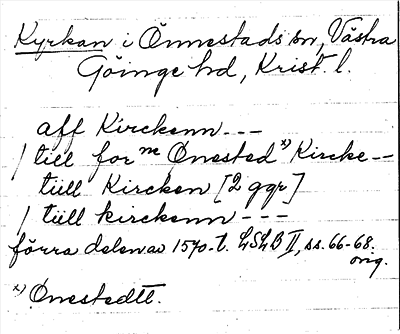 Kyrkan i Önnestads sn, Västra
Göinge hd, Krist. l.
aff Kirckenn ---
/ till for^ne Ønested^x) Kircke --
tiill Kircken [2 ggr]
/ tiill kirckenn ---
förra delen av 1570-t. LSLB II, ss. 66-68.
orig.
x) Ønestedtt.